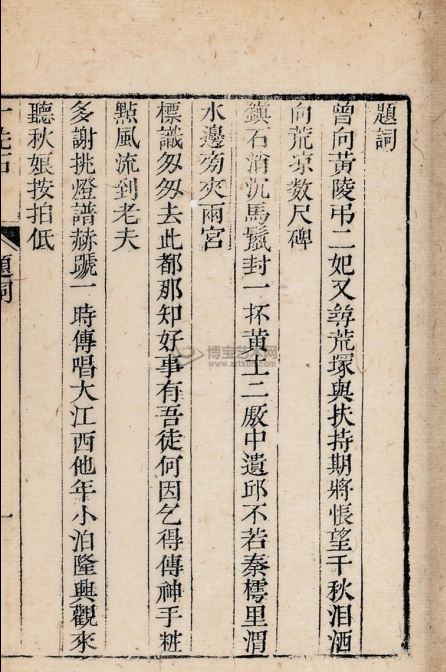 題詞
曾向黃陵弔二妃又尋荒塚與扶持期將悵望千秋泪洒
向荒凉数尺碑
鎮石消沉馬鬣封一抔黃土二厫中遺邱不若秦樗里渭
水邊旁夾兩宮
標識匆匆去此都那知好事有吾徒何因乞得傳神手粧
點風流到老夫
多謝挑燈譜赫蹏一時傳唱大江西他年小泊隆興觀來
聽秋娘按拍低
題詞
一
博宝艺术网
www.artxun.com